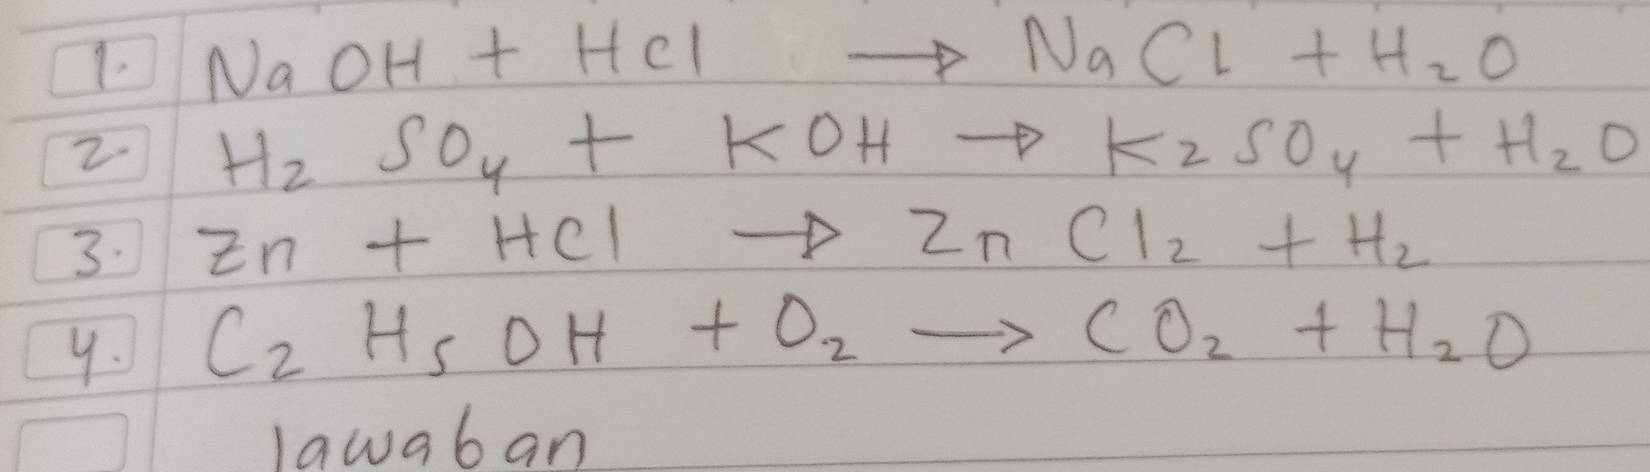 1. NaOH + HCl → NaCl + H₂O
2. H₂ SO₄ + KOH → K₂SO₄ + H₂O
3. Zn + HCl → Zn Cl₂ + H₂
4. C₂ H₅ OH + O₂ → CO₂ + H₂O
Jawaban